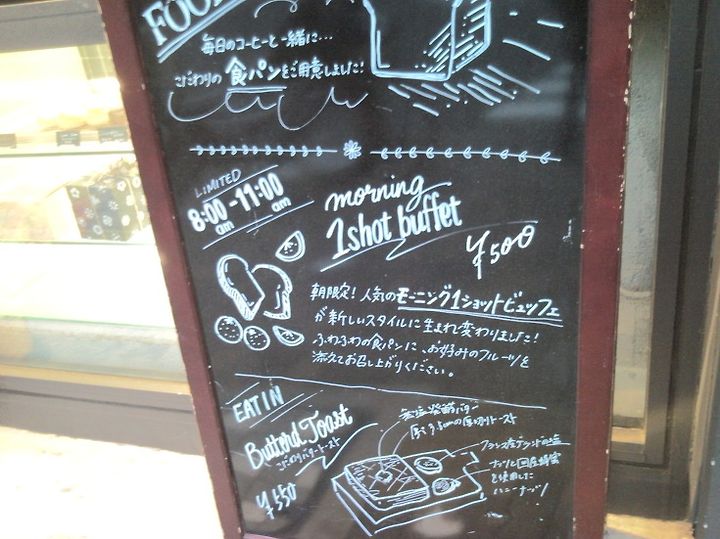 毎日のコーヒーと一緒に…
こだわりの食パンをご用意しました!
LIMITED
8:00am-11:00am
morning
1shot buffet
¥500
朝限定!人気のモーニング1ショットビュッフェ
が新しいスタイルに生まれ変わりました!
ふわふわの食パンに、お好みのフルーツを
添えてお召し上がりください。
EAT IN
Butterd Toast
こだわりバタートースト
¥550
無塩発酵バター
厚さ3.5cmの厚切りトースト
フランス産ゲランドの塩
ナッツと国産蜂蜜
を使用した
ハニーナッツ